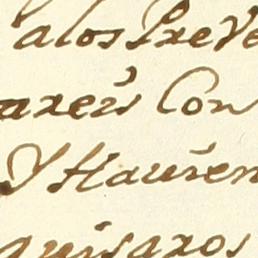 alos Preve
axeis Con
Y Hauien
quisaxos